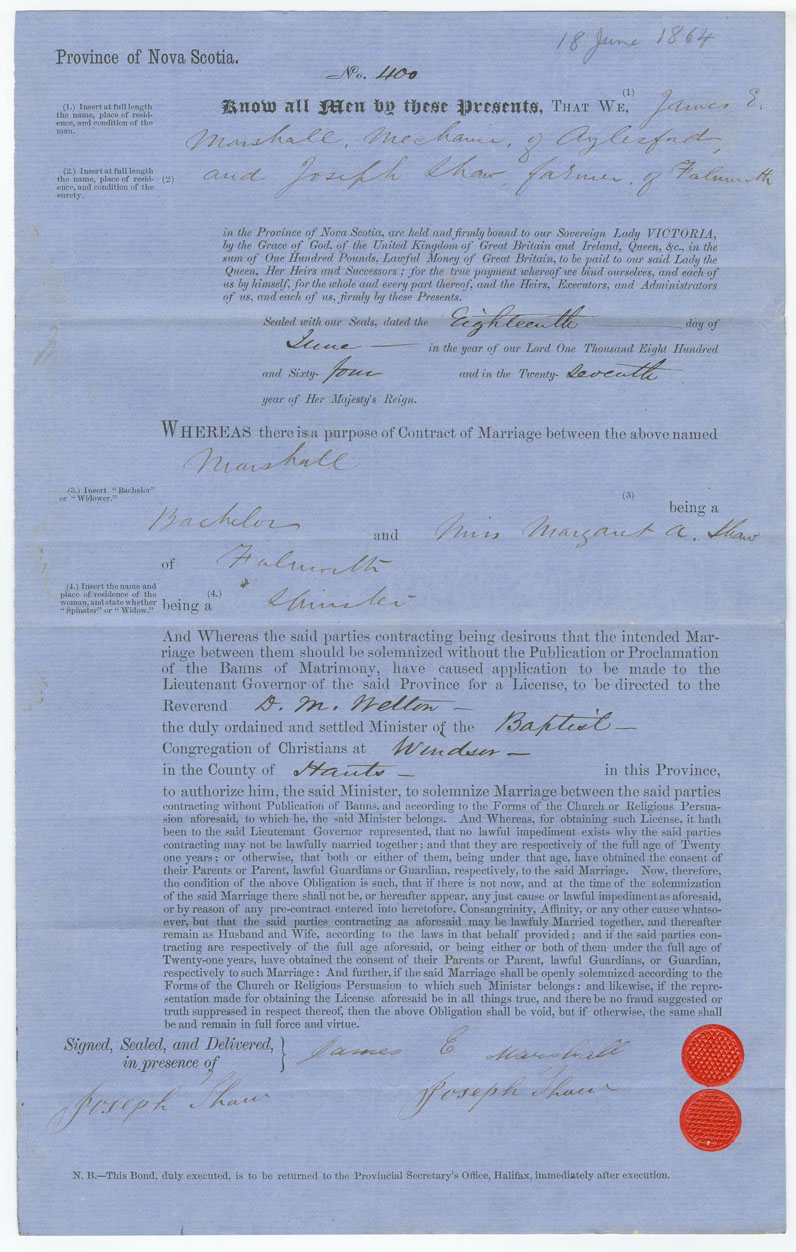 18 June 1864
Province of Nova Scotia.
No. 400
(1.) Insert at full length
the name, place of resid-
ence, and condition of the
man.
(1)
Know all Men by these Presents, THAT WE, James E.
Marshall, Mechanic, of Aylesford,
(2.) Insert at full length
the name, place of resid-
ence, and condition of the
surety.
(2)
and Joseph Shaw, farmer, of Falmouth
in the Province of Nova Scotia, are held and firmly bound to our Sovereign Lady VICTORIA,
by the Grace of God, of the United Kingdom of Great Britain and Ireland, Queen, &c., in the
sum of One Hundred Pounds, Lawful Money of Great Britain, to be paid to our said Lady the
Queen, Her Heirs and Successors ; for the true payment whereof we bind ourselves, and each of
us by himself, for the whole and every part thereof, and the Heirs, Executors, and Administrators
of us, and each of us, firmly by these Presents.
Sealed with our Seals, dated the Eighteenth day of
June — in the year of our Lord One Thousand Eight Hundred
and Sixty- four and in the Twenty- Seventh
year of Her Majesty's Reign.
WHEREAS there is a purpose of Contract of Marriage between the above named
Marshall
(3.) Insert "Bachelor"
or "Widower."
(3)
being a
Bachelor and Miss Margaret A. Shaw
of Falmouth
(4.) Insert the name and
place of residence of the
woman, and state whether
"Spinster" or "Widow."
(4.)
being a Spinster
And Whereas the said parties contracting being desirous that the intended Mar-
riage between them should be solemnized without the Publication or Proclamation
of the Banns of Matrimony, have caused application to be made to the
Lieutenant Governor of the said Province for a License, to be directed to the
Reverend D. M. Welton —
the duly ordained and settled Minister of the Baptist —
Congregation of Christians at Windsor —
in the County of Hants — in this Province,
to authorize him, the said Minister, to solemnize Marriage between the said parties
contracting without Publication of Banns, and according to the Forms of the Church or Religious Persua-
sion aforesaid, to which he, the said Minister belongs. And Whereas, for obtaining such License, it hath
been to the said Lieutenant Governor represented, that no lawful impediment exists why the said parties
contracting may not be lawfully married together ; and that they are respectively of the full age of Twenty
one years ; or otherwise, that both or either of them, being under that age, have obtained the consent of
their Parents or Parent, lawful Guardians or Guardian, respectively, to the said Marriage. Now, therefore,
the condition of the above Obligation is such, that if there is not now, and at the time of the solemnization
of the said Marriage there shall not be, or hereafter appear, any just cause or lawful impediment as aforesaid,
or by reason of any pre-contract entered into heretofore, Consanguinity, Affinity, or any other cause whatso-
ever, but that the said parties contracting as aforesaid may be lawfuly Married together, and thereafter
remain as Husband and Wife, according to the laws in that behalf provided ; and if the said parties con-
tracting are respectively of the full age aforesaid, or being either or both of them under the full age of
Twenty-one years, have obtained the consent of their Parents or Parent, lawful Guardians, or Guardian,
respectively to such Marriage : And further, if the said Marriage shall be openly solemnized according to the
Forms of the Church or Religious Persuasion to which such Ministsr belongs : and likewise, if the repre-
sentation made for obtaining the License aforesaid be in all things true, and there be no fraud suggested or
truth suppressed in respect thereof, then the above Obligation shall be void, but if otherwise, the same shall
be and remain in full force and virtue.
Signed, Sealed, and Delivered,
in presence of
James E Marshall
Joseph Shaw
Joseph Shaw
N. B.—This Bond, duly executed, is to be returned to the Provincial Secretary's Office, Halifax, immediately after execution.